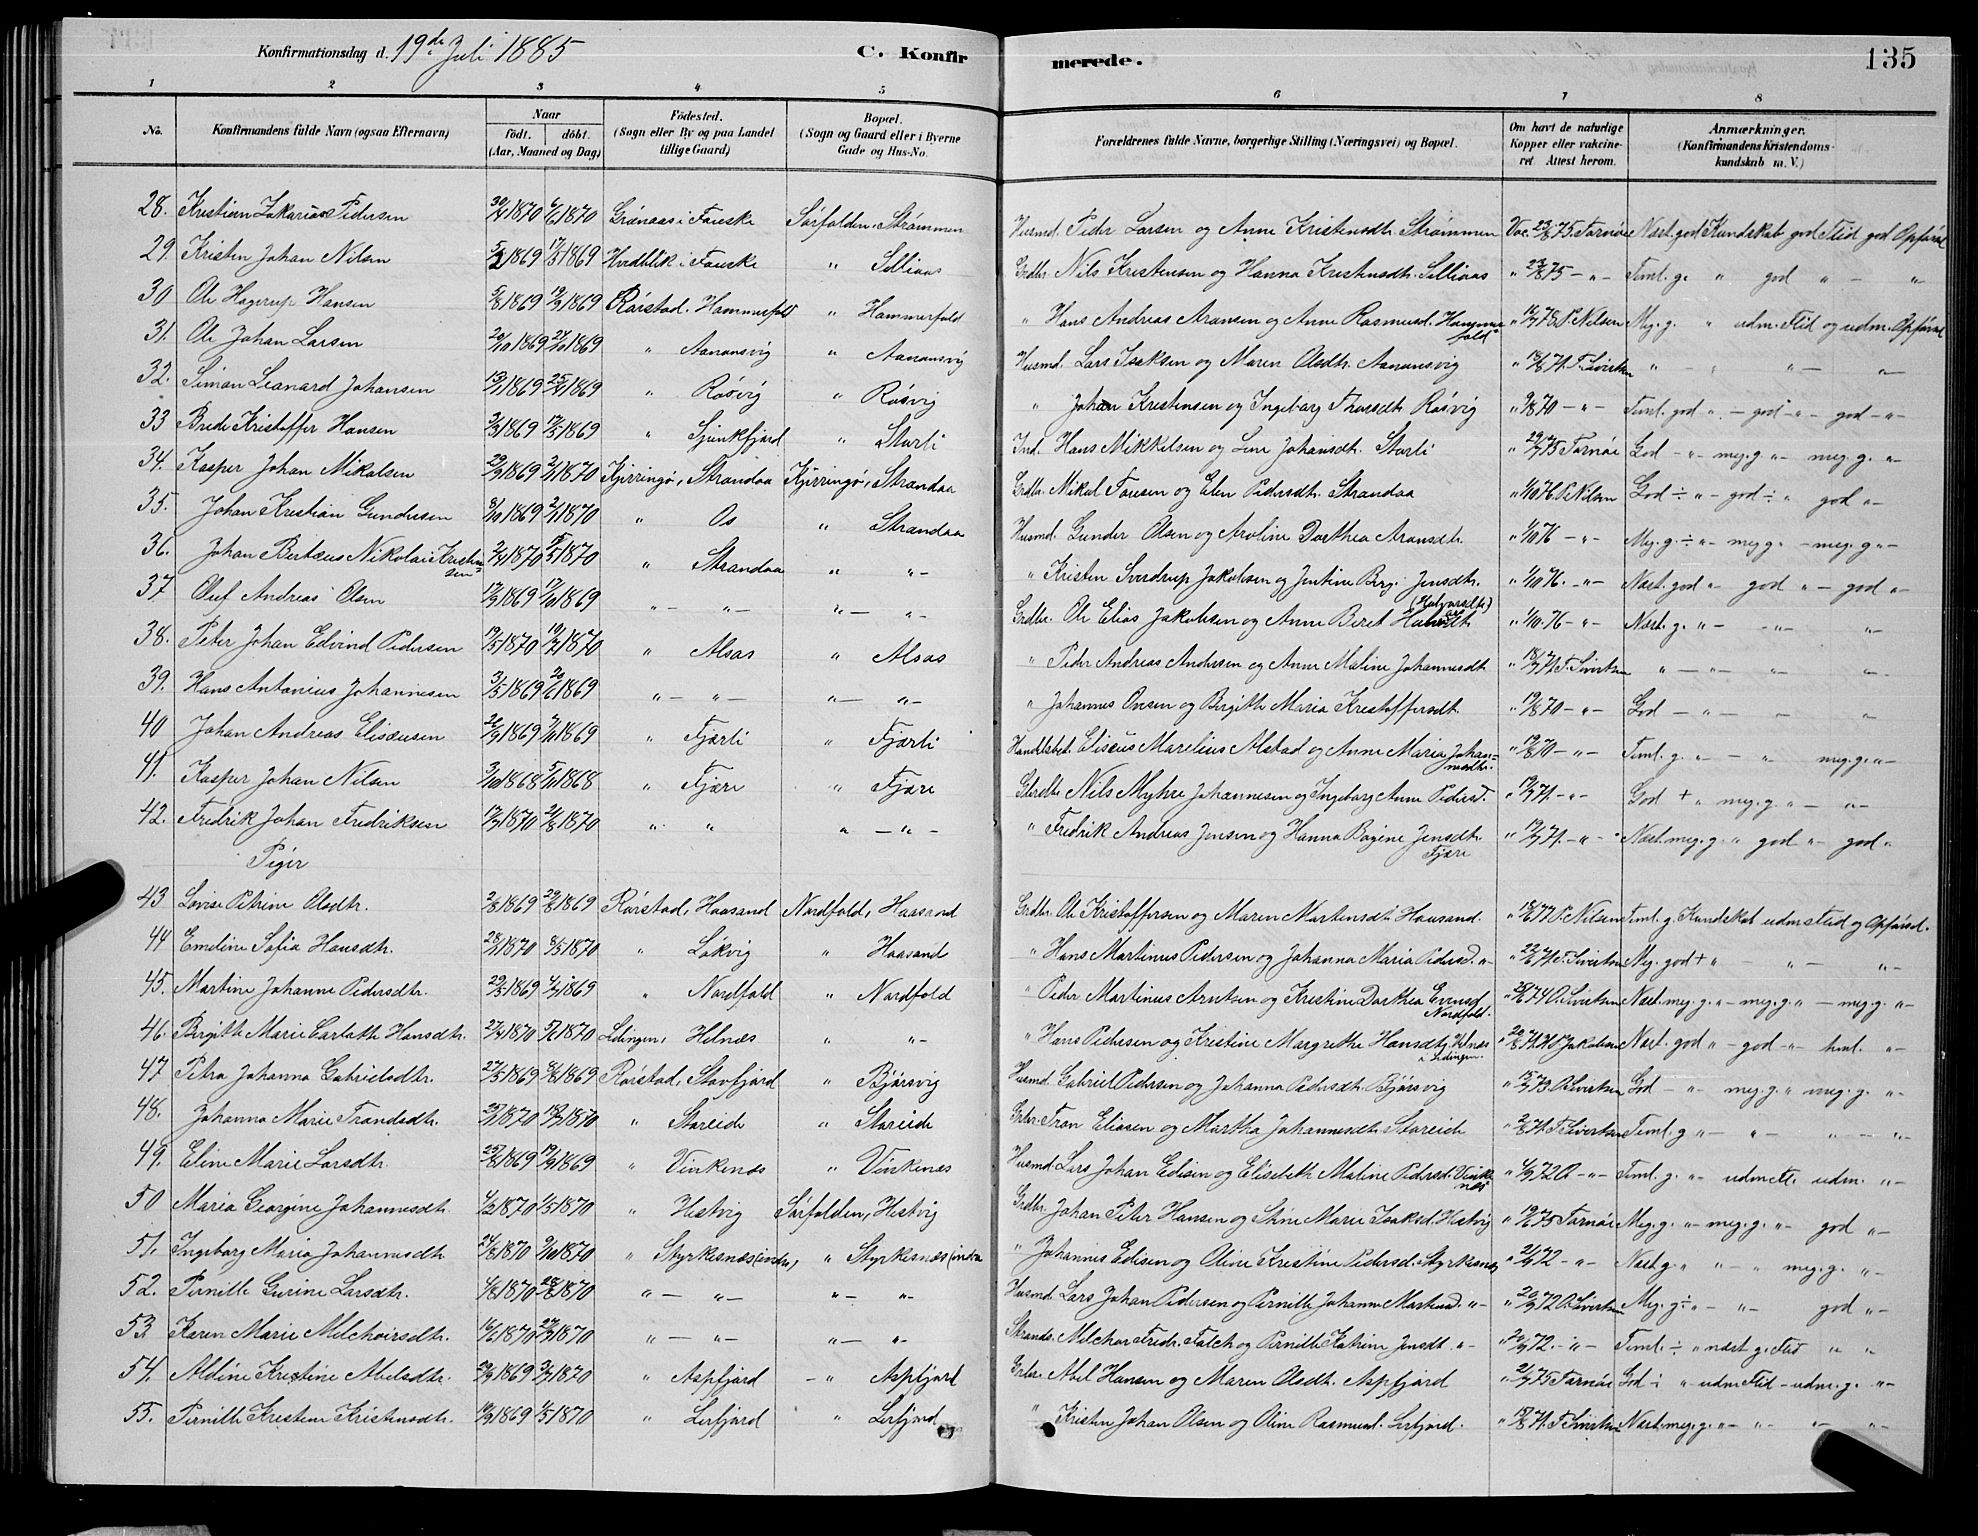 Konfirmationsdag d. 19de Juli 1885
C. Konfirmerede.
135
1 2 3 4 5 6 7 8
No. Konfirmandens fulde Navn (ogsaa Efternavn) Naar født. døbt. (Aar, Maaned og Dag) Fødested. (Sogn eller By og paa Landet tillige Gaard) Bopæl. (Sogn og Gaard eller i Byerne Gade og Hus-No. Forældrenes fulde Navne, borgerlige Stilling (Næringsvei) og Bopæl. Om havt de naturlige Kopper eller vakcineret. Attest herom. Anmærkninger. (Konfirmandens Kristendomskundskab m. V.)
28. Kristian Zakarias Pedersen 30/4 1870 6/6 1870 Grønaas i Fauske Sørfolden, Strømmen Husmd. Peder Larsen og Anne Kristensdtr. Strømmen Vac. 23/8 75 Tornøe Næst. god Kundskab god Flid god Opførsel
29. Kristen Johan Nilsen 5/2 1869 17/5 1869 Hvidblik i Fauske " Selliaas Grdbr. Nils Kristensen og Hanna Kristensdtr. Selliaas " 23/8 75 - " - Teml. g. " god " - "
30 Ole Hagerup Hansen 5/8 1869 19/9 1869 Rørstad. Hammerfald " Hammerfald " Hans Andreas Aronsen og Anne Rasmusd. Hammerfald " 78 P. Nilsen Meg. g. " udm. Flid og udm. Opførsel
31. Ole Johan Larsen 20/10 1869 24/10 1869 " Aanansvig " Aanansvig Husmd. Lars Isaksen og Maren Olsdtr. Aanansvig " 71. T. Sivertsen " - " - " -
32. Simon Leanard Johansen 13/1 1869 25/4 1869 " Røsvig " Røsvig " Johan Kristensen og Ingebarg Thorsdtr. Røsvig " 9/8 70 - " - Teml. god " - god - " - god - " -
33 Brede Kristoffer Hansen 3/3 1869 17/5 1869 " Sjunkfjord " Storli Ind. Hans Mikkelsen og Lene Johansdtr. Storli " 29/7 75 Tornøe God - " - meg. g. " - meg. g. " -
34. Kasper Johan Mikalsen 29/9 1869 2/1 1870 Kjerringø, Strandaa Kjerringø, Strandaa Grdbr. Mikal Tonesen og Elen Pedersdtr. Strandaa " 1/10 76 P. Nilsen God ÷ " - god ÷ " god " -
35. Johan Kristian Gundersen 8/10 1869 2/1 1870 " Os " Strandaa Husmd. Gunder Olsen og Aroline Dorthea Aronsdtr. " 1/10 76 - " - Meg. g. ÷ " - meg g. - meg. g " -
36. Johan Berteus Nikolai Kristensen 2/4 1870 1870 " Strandaa " " - " Kristen Sverdrup Jakobsen og Jentine Berg. Jensdtr. " 1/10 76. - " - Næst. god " god " - god " -
37 Oluf Andreas Olsen 17/9 1869 17/10 1869 " - " - " - " - Grdbr. Ole Elias Jakobsen og Anne Beret (Halvorsdtr) " 1/10. 76 - " - Næst. g. " - - " - " -
38. Peter Johan Edvind Pedersen 19/5 1870 19/7 1870 " Alsos " Alsos " Peder Andreas Andersen og Anne Maline Johannesdtr " 18/7 71. T. Sivertsen " - " - " - " -
39. Hans Antonius Johannesen 3/5 1869 20/6 1869 " - " - " - " - " Johannes Onsen og Birgitte Maria Kristoffersdtr. " 19/8 70 - " - God - " - " - "
40 Johan Andreas Eliseusen 26/9 1869 1869 " Fjærli " Fjærli Handelsbet. Eliseus Marelius Alstad og Anne Maria Johannesdtr. " 19/8 70 - " - Teml. g. " - - " meg. g. " -
41. Kasper Johan Nilsen 3/10 1868 5/11 1868 " Fjære " Fjære Nils Myhre Johannesen og Ingebarg Anne Pedersd. " 19/7 71. - " - God + " meg. g. " - " -
42. Fredrik Johan Fredriksen 17/7 1870 21/8 1870 " " " - " - " Fredrik Andreas Jensen og Hanna Bergine Jensdtr. Fjære " 19/7 71. - " - Næst. meg. g. " god " - god "
Piger
43 Lovise Petrine Olsdtr. 2/8 1869 29/8 1869 Rørstad, Haasand Nordfold, Haasand Grdbr. Ole Kristoffersen og Maren Martensdtr. Haasand. " 18/6 72 P. Nilsen Teml. g. Kundskab udm Flid og Opførsel.
44 Emeline Sofia Hansdtr. 28/1 1870 8/5 1870 " Løkvig " Haasand " Hans Martinus Pedersen og Johanna Maria Pedersd. " - " 22/6 71. T. Sivertsen Meg. god + " - " - " -
45. Martine Johanne Pedersdtr. 29/5 1869 4/7 1869 " Nordfold " Nordfold " Peder Martinus Arntsen og Kristine Dorthea Evensd Nordfold. " 74 O. Sivertsen Næst. meg. g. " - meg. g. " - meg. g. " -
46. Birgitte Marie Carlatte Hansdtr. 27/4 1870 5/6 1870 Lødingen, Helnæs " " - " Hans Pedersen og Kristine Margrethe Hansdtr. Helnæs i Lødingen. " 20/8 71. Jakobsen Næst. god " - god - " - teml. " -
47 Petra Johanna Gabrielsdtr. 27/5 1869 8/8 1869 Rørstad, Stavfjord " Bjørsvig Husmd. Gabriel Pedersen og Johanna Pedersdtr. Bjørsvig " 15/7 73 O. Sivertsen God - " - meg. g. " meg. g. " -
48. Johanna Marie Tronsdtr. 23/1 1870 18/4 1870 " Storeide " Storeide Grbr. Tron Eliasen og Martha Johannesdtr. Storeide " 71. T. Sivertsen Teml. g " - " - " - " -
49. Eline Marie Larsdtr. 25/8 1869 19/9 1869 " Vinkenes " Vinkenes Husmd. Lars Johan Edisen og Elisabeth Maline Pedersd. Vinkenes " 4/9 72 O - " - Teml. g. " - udmett. udm. " -
50 Maria Georgine Johannesdtr. 4/2 1870 1/5 1870 " Hestvig Sørfolden, Hestvig Grdbr. Johan Peter Hansen og Stine Marie Isaksd. Hestvig " 19/8 75 Tornøe Meg. g. " - meg. g. " - god " -
51. Ingebarg Maria Johannesdtr 24/8 1870 9/10 1870 " Styrkesnæs (indre) " Styrkesnæs (indre " Johannes Edisen og Oline Kristine Pedersd. Styrkesnæs " 72 - " - Næst g. " " - " meg. g. " -
52. Pernille Gurine Larsdtr. 4/8 1870 28/8 1870 " - " - " - " - Husmd. Lars Johan Pedersen og Pernille Johanne Martinsd. " - " 20/9 72 O. Sivertsen Meg. g ÷ " - " - god " -
53. Karen Marie Melchoirsdtr. 16/6 1870 1870 " - " - " - " - Melchor Fredr. Falch og Pernille Katrine Jensdt. " - " 20/9 72. - " - Teml. ÷ " næst g. Flid " "
54. Aldine Kristine Abelsdtr. 29/9 1869 2/7 1870 " Aspfjord - " Aspfjord Grbr. Abel Hansen og Maren Olsdtr. Aspfjord " 75 Tornøe God ÷ " udm Flid - udm. g. " -
55. Pernille Kristine Kristensdtr. 19/9 1869 1/5 1870 " Lerfjord " Lerfjord " Kristen Johan Olsen og Oline Rasmusd. Lerfjord. " 18/8 71. T. Sivertsen Næst. meg. g. " - " - " - " -